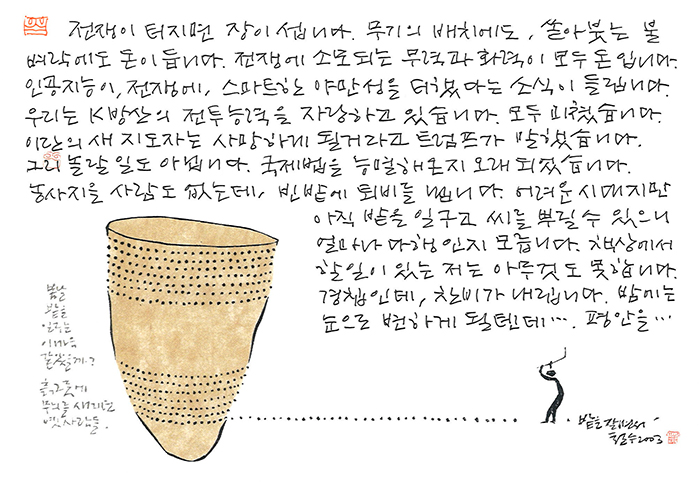 전쟁이 터지면 장이 섭니다. 무기의 배치에도, 쏟아붓는 불
벼락에도 돈이 듭니다. 전쟁에 소모되는 무력과 화력이 모두 돈입니다.
인공지능이, 전쟁에, 스마트한 야만성을 더했다는 소식이 들립니다.
우리는 K방산의 전투능력을 자랑하고 있습니다. 모두 미쳤습니다.
이란의 새 지도자는 사망하게 될거라고 트럼프가 말했습니다.
그리 놀랄 일도 아닙니다. 국제법을 능멸해온지 오래 되었습니다.
농사지을 사람도 없는데, 빈 밭에 퇴비를 냅니다. 어려운 시대지만
아직 밭을 일구고 씨를 뿌릴 수 있으니
얼마나 다행인지 모릅니다. 책상에서
할 일이 있는 저는 아무것도 못합니다.
경칩인데, 찬비가 내립니다. 밤에는
눈으로 변하게 될텐데…. 평안을…
봄날
밭을
일구는
이 마음
같았을까?
흙그릇에
무늬를 새기던
옛사람들.
철수 2003